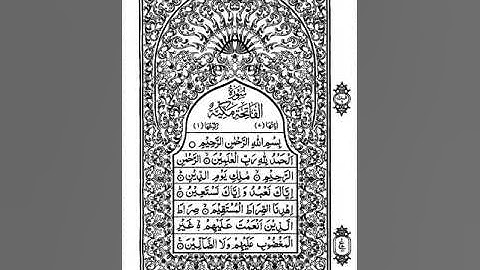 سُورَةُ
الْفَاتِحَةِ مَكِّيَّةٌ
(٥) (١)
بِسْمِ اللهِ الرَّحْمٰنِ الرَّحِيْمِ ○
اَلْحَمْدُ لِلّٰهِ رَبِّ الْعٰلَمِيْنَ ○ الرَّحْمٰنِ
الرَّحِيْمِ ○ مٰلِكِ يَوْمِ الدِّيْنِ ○
اِيَّاكَ نَعْبُدُ وَ اِيَّاكَ نَسْتَعِيْنُ ○
اِهْدِنَا الصِّرَاطَ الْمُسْتَقِيْمَ ○ صِرَاطَ
الَّذِيْنَ اَنْعَمْتَ عَلَيْهِمْ ○ غَيْرِ
الْمَغْضُوْبِ عَلَيْهِمْ وَلَا الضَّآلِّيْنَ ○